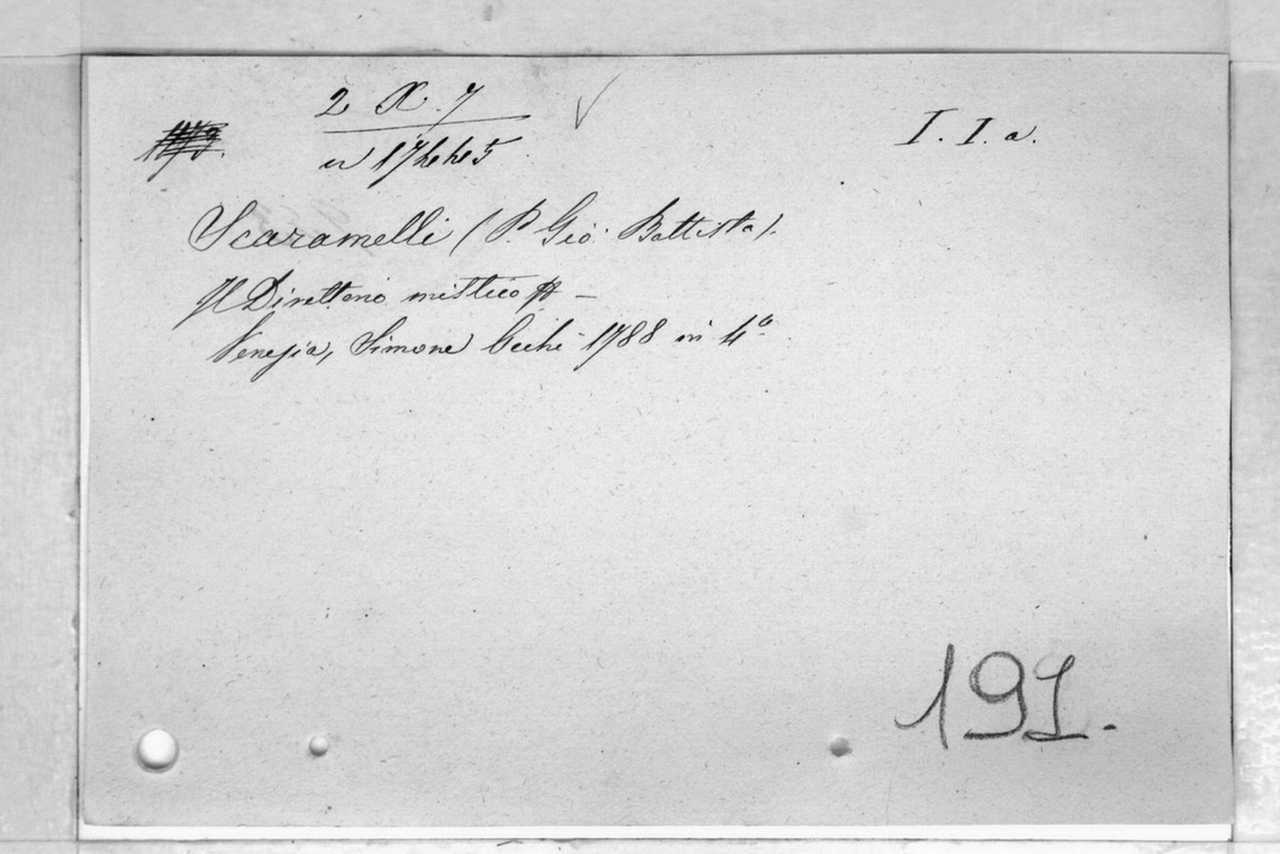 2 X 7
I. I. a.
n 17445
Scaramelli (P. Gio: Battista).
Il Direttorio mistico —
Venezia, Simone Occhi 1788 in 4°.
191.